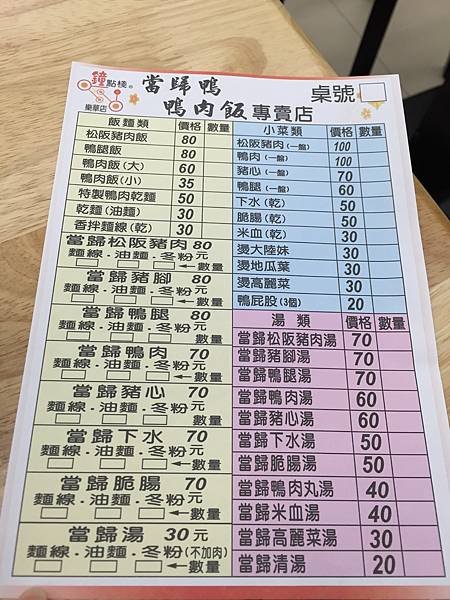 鐘點棧®
樂華店
當歸鴨
鴨肉飯專賣店
桌號
飯麵類 價格 數量
松阪豬肉飯 80
鴨腿飯 80
鴨肉飯(大) 60
鴨肉飯(小) 35
特製鴨肉乾麵 50
乾麵(油麵) 30
香拌麵線(乾) 30
當歸松阪豬肉 80
麵線.油麵.冬粉元
←數量
當歸豬腳 80
麵線.油麵.冬粉元
←數量
當歸鴨腿 80
麵線.油麵.冬粉元
←數量
當歸鴨肉 70
麵線.油麵.冬粉元
←數量
當歸豬心 70
麵線.油麵.冬粉元
←數量
當歸下水 70
麵線.油麵.冬粉元
←數量
當歸脆腸 70
麵線.油麵.冬粉元
←數量
當歸湯 30元
麵線.油麵.冬粉(不加肉)
←數量
小菜類 價格 數量
松阪豬肉(一盤) 100
鴨肉(一盤) 100
豬心(一盤) 70
鴨腿(一盤) 60
下水(乾) 50
脆腸(乾) 50
米血(乾) 30
燙大陸妹 30
燙地瓜葉 30
燙高麗菜 30
鴨屁股(3個) 20
湯類 價格 數量
當歸松阪豬肉湯 70
當歸豬腳湯 70
當歸鴨腿湯 70
當歸鴨肉湯 60
當歸豬心湯 60
當歸下水湯 50
當歸脆腸湯 50
當歸鴨肉丸湯 40
當歸米血湯 40
當歸高麗菜湯 30
當歸清湯 20